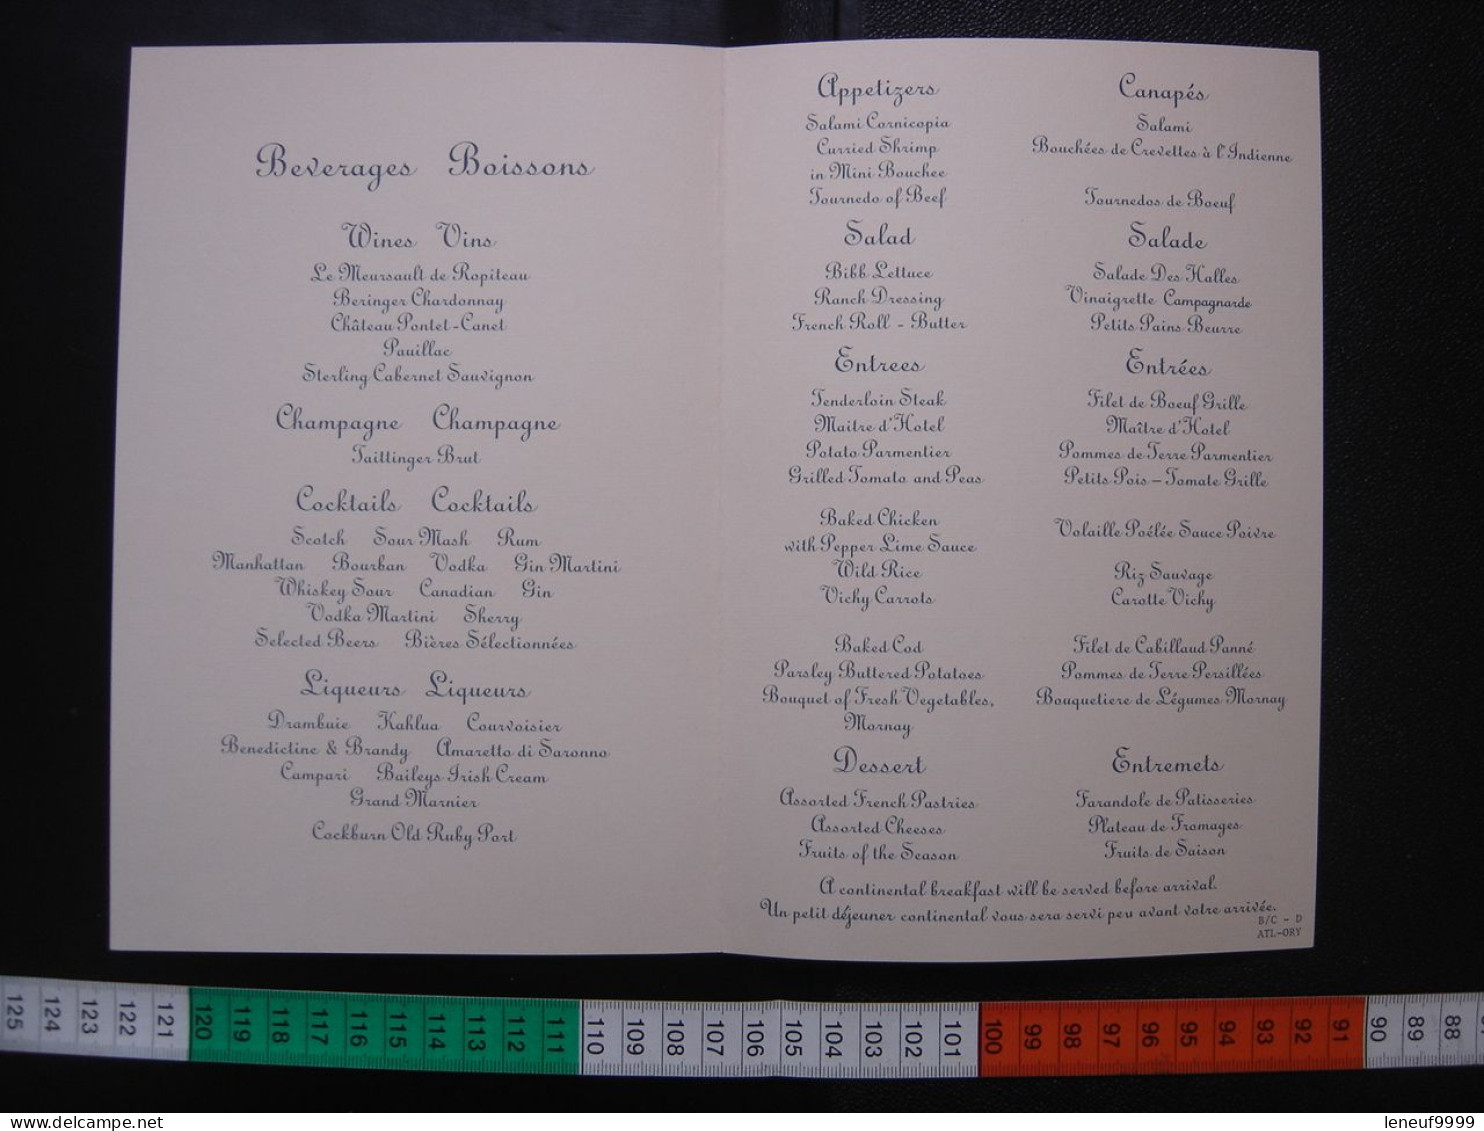 Beverages Boissons
Wines Vins
Le Meursault de Ropiteau
Beringer Chardonnay
Château Pontet-Canet
Pauillac
Sterling Cabernet Sauvignon
Champagne Champagne
Taittinger Brut
Cocktails Cocktails
Scotch Sour Mash Rum
Manhattan Bourban Vodka Gin Martini
Whiskey Sour Canadian Gin
Vodka Martini Sherry
Selected Beers Bières Sélectionnées
Liqueurs Liqueurs
Drambuie Kahlua Courvoisier
Benedictine & Brandy Amaretto di Saronno
Campari Baileys Irish Cream
Grand Marnier
Cockburn Old Ruby Port
Appetizers
Salami Cornicopia
Curried Shrimp
in Mini Bouchee
Tournedo of Beef
Salad
Bibb Lettuce
Ranch Dressing
French Roll - Butter
Entrees
Tenderloin Steak
Maitre d'Hotel
Potato Parmentier
Grilled Tomato and Peas
Baked Chicken
with Pepper Lime Sauce
Wild Rice
Vichy Carrots
Baked Cod
Parsley Buttered Potatoes
Bouquet of Fresh Vegetables,
Mornay
Dessert
Assorted French Pastries
Assorted Cheeses
Fruits of the Season
Canapés
Salami
Bouchées de Crevettes à l'Indienne
Tournedos de Boeuf
Salade
Salade Des Halles
Vinaigrette Campagnarde
Petits Pains Beurre
Entrées
Filet de Boeuf Grille
Maître d'Hotel
Pommes de Terre Parmentier
Petits Pois - Tomate Grille
Volaille Poélée Sauce Poivre
Riz Sauvage
Carotte Vichy
Filet de Cabillaud Panné
Pommes de Terre Persillées
Bouquetiere de Légumes Mornay
Entremets
Farandole de Patisseries
Plateau de Fromages
Fruits de Saison
A continental breakfast will be served before arrival.
Un petit déjeuner continental vous sera servi peu avant votre arrivée.
B/C - D
ATL-ORY
125 124 123 122 121 120 119 118 117 116 115 114 113 112 111 110 109 108 107 106 105 104 103 102 101 100 99 98 97 96 95 94 93 92 91 90 89 88
delcampe.net
leneuf9999